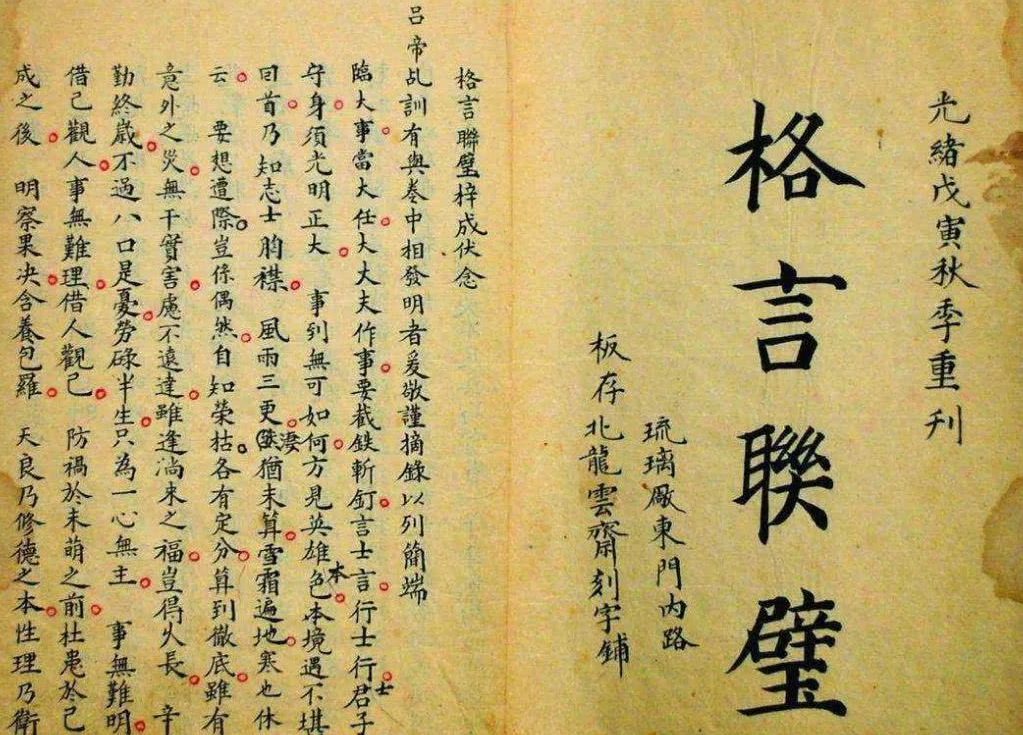 光緒戊寅秋季重刋
格言聯璧
琉璃厰東門内路
板存北龍雲齋刻字鋪
格言聯璧梓成伏念
吕帝乩訓有與卷中相發明者爰敬謹摘錄以列簡端
臨大事當大任大大夫作事要截鉄斬釘言士言行士行君子士
守身須光明正大 事到無可如何方見英雄色本本境遇不堪
回首乃知志士胸襟 風雨三更凄猶未算雪霜遍地寒也休
云 要想遭際豈係偶然自知榮枯各有定分算到徹底雖有
意外之災無干實害慮不遠達雖逢淌来之福豈得久長 辛
勤終歲不過八口是憂勞碌半生只為一心無主 事無難明
借己觀人事無難理借人觀己 防禍於未萌之前杜患於已
成之後 明察果决含養包羅 天良乃修德之本性理乃衛